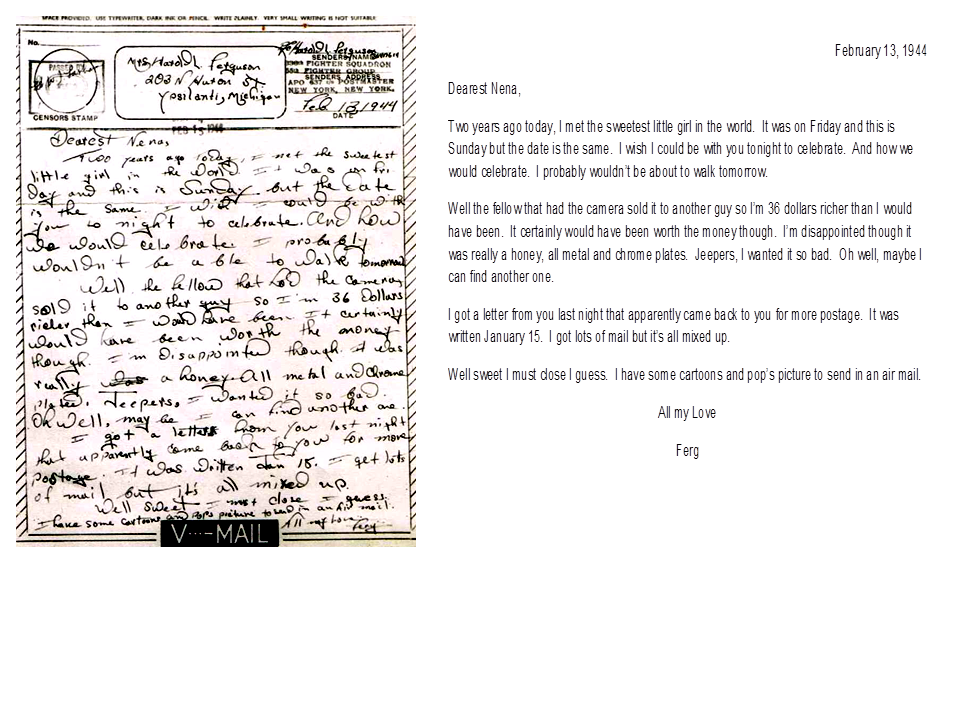 SPACE PROVIDED. USE TYPEWRITER, DARK INK OR PENCIL. WRITE PLAINLY. VERY SMALL WRITING IS NOT SUITABLE
No.
PASSED BY
CENSORS STAMP
Mrs. Harold L. Ferguson
203 N Huron St
Ypsilanti, Michigan
Harold L. Ferguson
SENDERS NAME
FIGHTER SQUADRON
FIGHTER GROUP
SENDERS ADDRESS
APO 637 POSTMASTER
NEW YORK, NEW YORK.
Feb 13, 1944
DATE
FEB 15 1944
Dearest Nena,
Two years ago today, I met the sweetest
little girl in the world. It was on Fri
day and this is Sunday but the date
is the same. I wish I could be with
you to night to celebrate. And how
we would celebrate. I probably
wouldn't be a ble to walk tomorrow
Well the fellow that had the camera,
sold it to another guy so I'm 36 dollars
richer than I would have been. It certainly
would have been worth the money
though. I'm disappointed though it was
really a honey. All metal and chrome
plated. Jeepers, I wanted it so bad.
Oh well, may be I can find another one.
I got a letter from you last night
that apparently came back to you for more
postage. It was written Jan 15. I get lots
of mail but it's all mixed up.
Well sweet I must close I guess.
I have some cartoons and pops picture to send in an air mail.
All my Love
Ferg
V···—MAIL
February 13, 1944
Dearest Nena,
Two years ago today, I met the sweetest little girl in the world. It was on Friday and this is
Sunday but the date is the same. I wish I could be with you tonight to celebrate. And how we
would celebrate. I probably wouldn't be about to walk tomorrow.
Well the fellow that had the camera sold it to another guy so I'm 36 dollars richer than I would
have been. It certainly would have been worth the money though. I'm disappointed though it
was really a honey, all metal and chrome plates. Jeepers, I wanted it so bad. Oh well, maybe I
can find another one.
I got a letter from you last night that apparently came back to you for more postage. It was
written January 15. I got lots of mail but it's all mixed up.
Well sweet I must close I guess. I have some cartoons and pop's picture to send in an air mail.
All my Love
Ferg